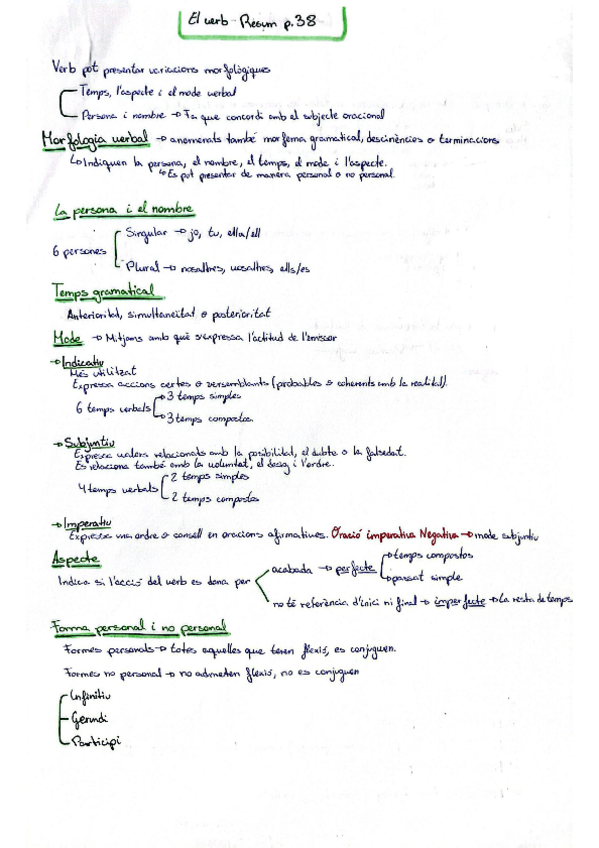 El verb - Resum p.38
Verb pot presentar variacions morfològiques
Temps, l'aspecte i el mode verbal
Persona i nombre → Fa que concordi amb el subjecte oracional
Morfologia verbal → anomenats també morfema gramatical, desinències o terminacions
↳ Indiquen la persona, el nombre, el temps, el mode i l'aspecte.
↳ Es pot presentar de manera personal o no personal.
La persona i el nombre
6 persones
Singular → jo, tu, ella/ell
Plural → nosaltres, vosaltres, ells/es
Temps gramatical
Anterioritat, simultaneïtat o posterioritat
Mode → Mitjans amb què s'expressa l'actitud de l'emissor
→ Indicatiu
Més utilitzat
Expressa accions certes o versemblants (probables o coherents amb la realitat).
6 temps verbals
→ 3 temps simples
→ 3 temps compostos.
→ Subjuntiu
Expressa valors relacionats amb la posibilitat, el dubte o la falsedat.
Es relaciona també amb la voluntat, el desig i l'ordre.
4 temps verbals
2 temps simples
2 temps compostos
→ Imperatiu
Expressa una ordre o consell en oracions afirmatives. Oració imperativa Negativa → mode subjuntiu
Aspecte
Indica si l'acció del verb es dona per
acabada → perfecte
→ temps compostos
→ passat simple
no té referència d'inici ni final → imperfecte → La resta de temps
Forma personal i no personal
Formes personals → totes aquelles que tenen flexió, es conjuguen.
Formes no personal → no admeten flexió, no es conjuguen
Infinitiu
Gerundi
Participi